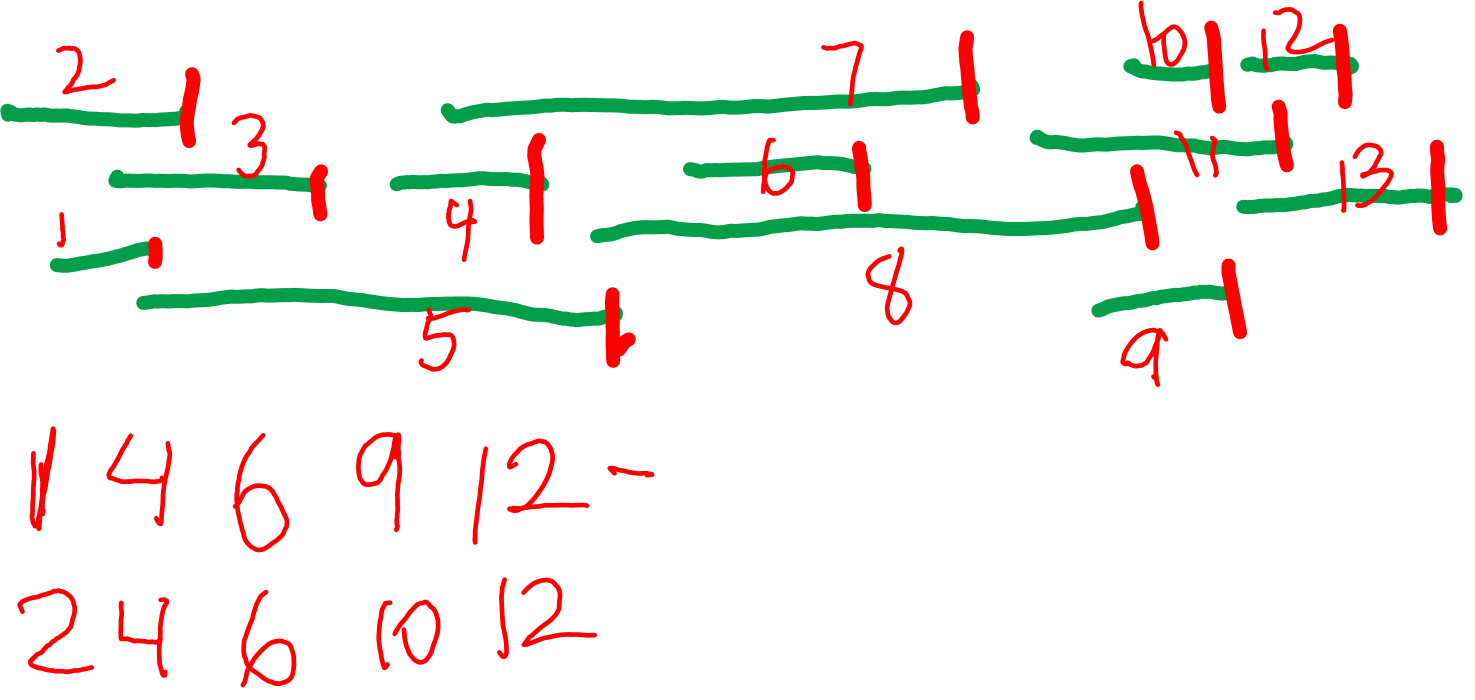 2 7 10 12
3 6 11 13
1 4
5 8 9
1 4 6 9 12 -
2 4 6 10 12